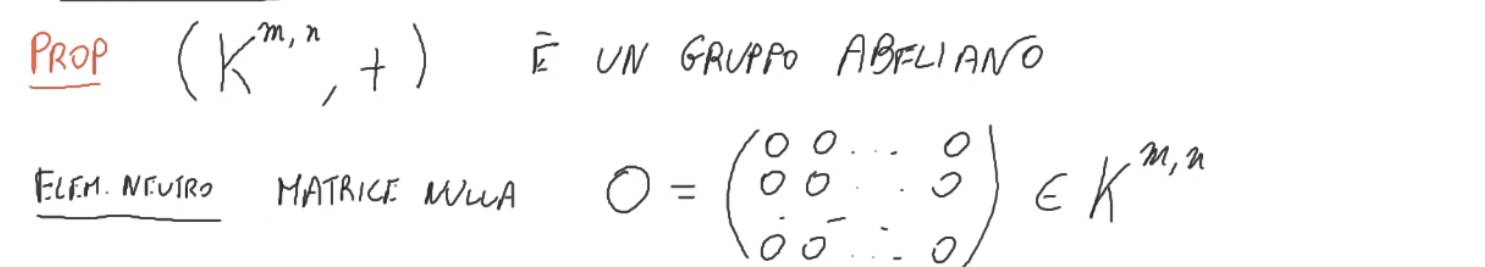 PROP (K^{m,n}, +) È UN GRUPPO ABELIANO
ELEM. NEUTRO MATRICE NULLA O = \begin{pmatrix} 0 & 0 & \dots & 0 \\ 0 & 0 & \dots & 0 \\ \vdots & & & \vdots \\ 0 & 0 & \dots & 0 \end{pmatrix} ∈ K^{m,n}